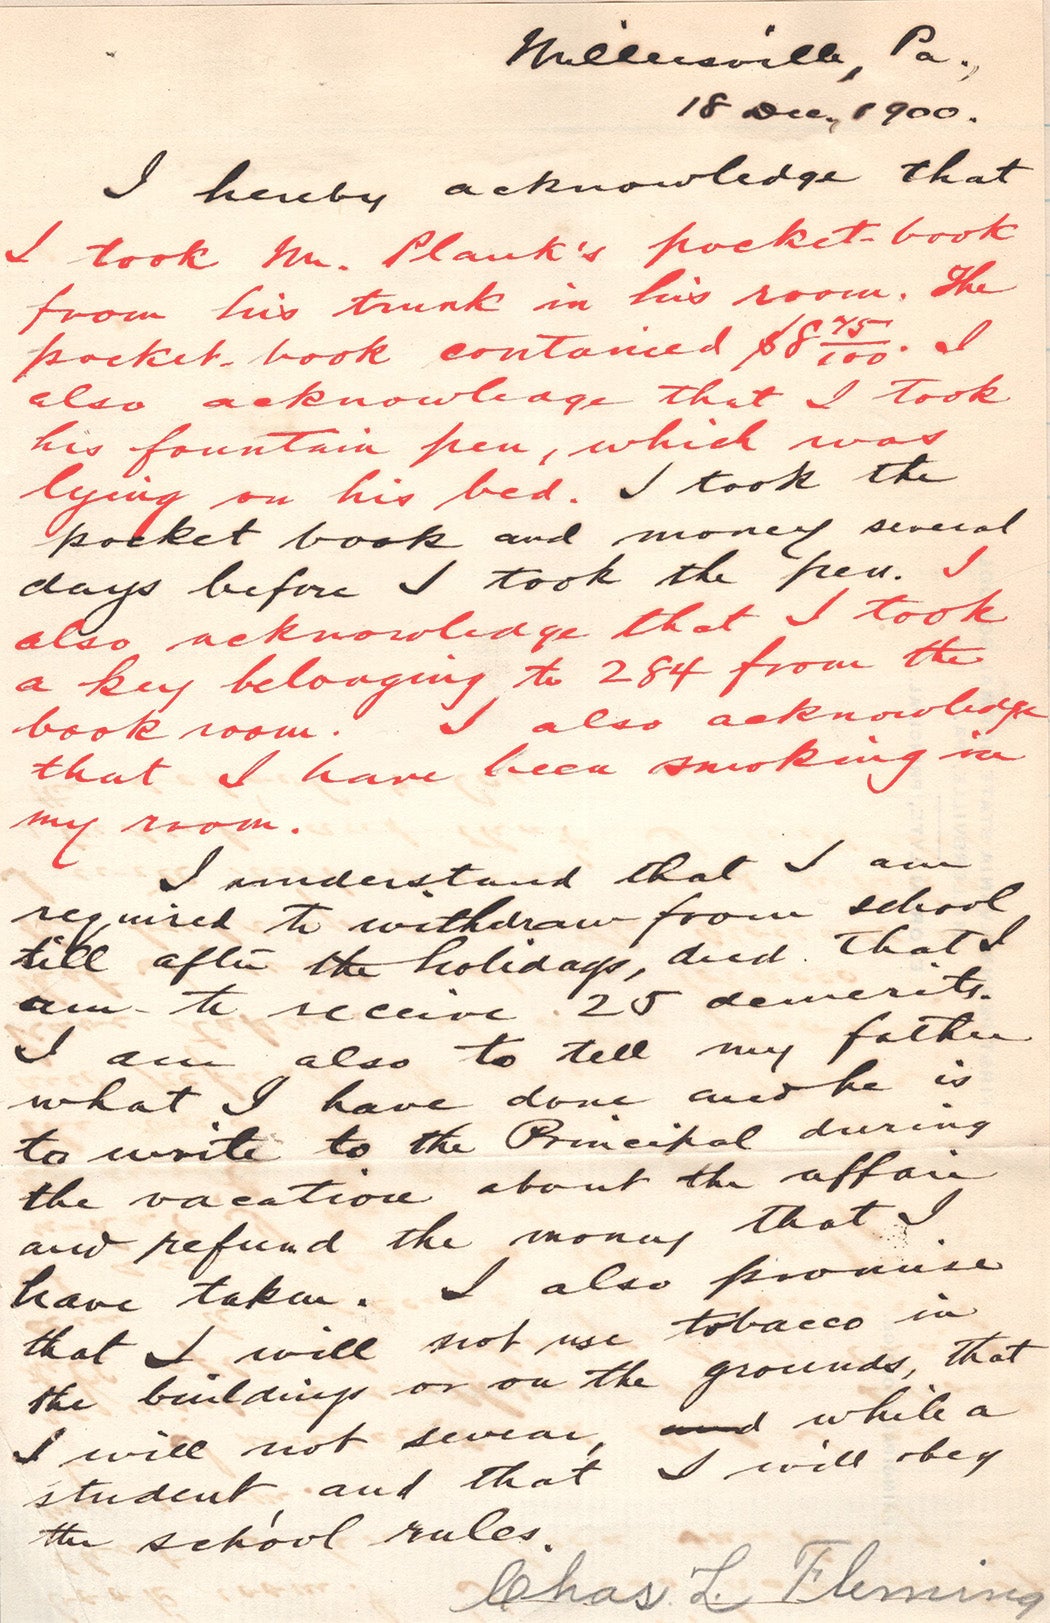 Millersville, Pa.,
18 Dec., 1900.
I hereby acknowledge that
I took Mr. Plank's pocket-book
from his trunk in his room. The
pocket-book contained $8 75/100. I
also acknowledge that I took
his fountain pen, which was
lying on his bed. I took the
pocket book and money several
days before I took the pen. I
also acknowledge that I took
a key belonging to 284 from the
book room. I also acknowledge
that I have been smoking in
my room.
I understand that I am
required to withdraw from school
till after the holidays, and that I
am to receive 25 demerits.
I am also to tell my father
what I have done and he is
to write to the Principal during
the vacation about the affair
and refund the money that I
have taken. I also promise
that I will not use tobacco in
the buildings or on the grounds, that
I will not swear, and while a
student, and that I will obey
the school rules.
Chas. L. Fleming